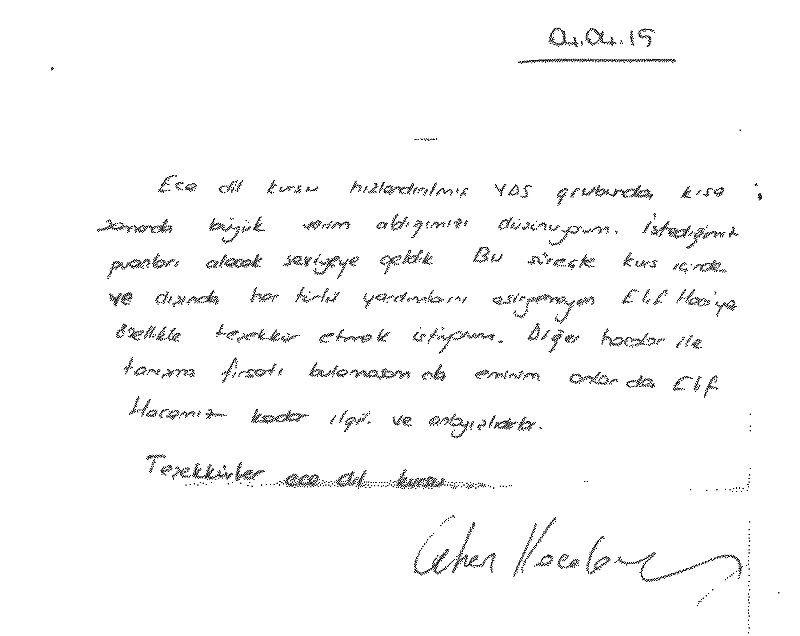 04.04.19
Ece dil kursu hızlandırılmış YDS grubunda, kısa
zamanda büyük verim aldığımızı düşünüyorum. İstediğimiz
puanları alacak seviyeye geldik. Bu süreçte kurs içinde
ve dışında her türlü yardımlarını esirgemeyen Elif Hoca'ya
özellikle teşekkür etmek istiyorum. Diğer hocalar ile
tanışma fırsatı bulamasam da eminim onlar da Elif
Hocamız kadar ilgili ve anlayışlıdırlar.
Teşekkürler ece dil kursu